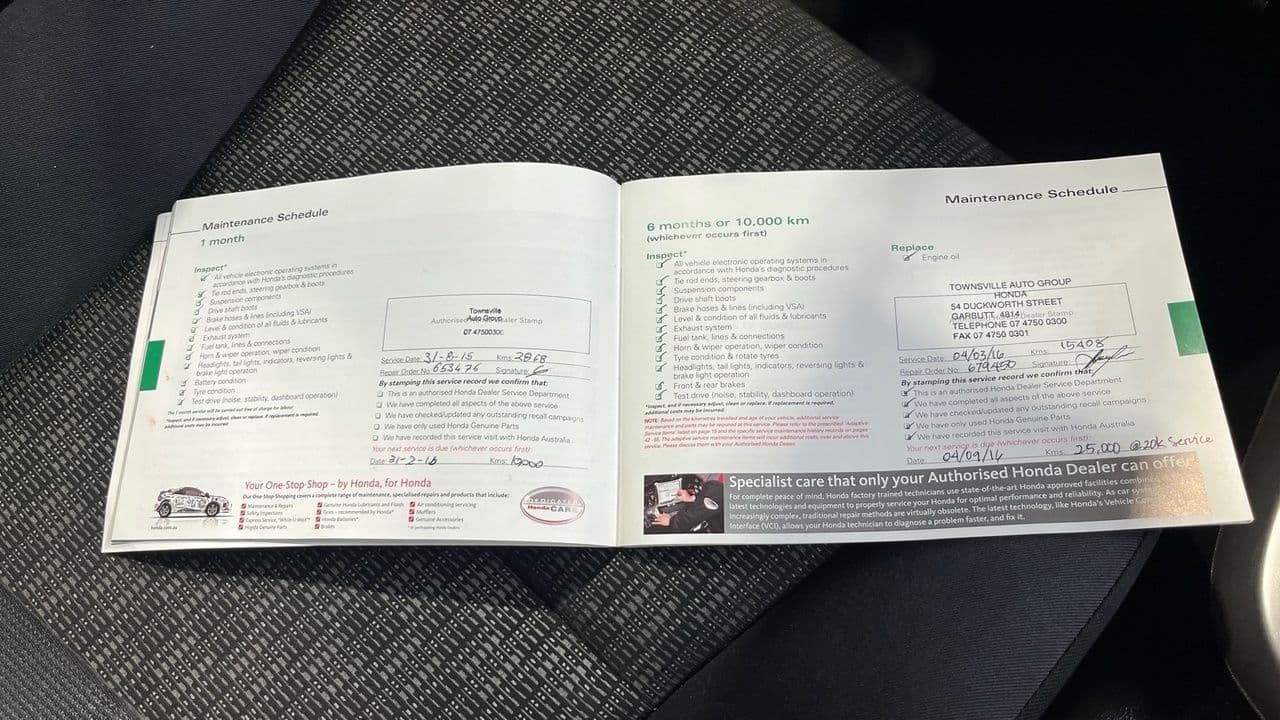 Maintenance Schedule
1 month
Inspect*
All vehicle electronic operating systems in
accordance with Honda's diagnostic procedures
Tie rod ends, steering gearbox & boots
Suspension components
Drive shaft boots
Brake hoses & lines (including VSA)
Level & condition of all fluids & lubricants
Exhaust system
Fuel tank, lines & connections
Horn & wiper operation, wiper condition
Headlights, tail lights, indicators, reversing lights &
brake light operation
Battery condition
Tyre condition
Test drive (noise, stability, dashboard operation)
The 1 month service will be carried out free of charge for labour
*Inspect, and if necessary adjust, clean or replace. If replacement is required,
additional costs may be incurred.
Townsville
Auto Group
Authorised Dealer Stamp
07 47500300
Service Date: 31-8-15 Kms: 2868
Repair Order No: 653476 Signature:
By stamping this service record we confirm that:
This is an authorised Honda Dealer Service Department
We have completed all aspects of the above service
We have checked/updated any outstanding recall campaigns
We have only used Honda Genuine Parts
We have recorded this service visit with Honda Australia
Your next service is due (whichever occurs first)
Date: 31-2-16 Kms: 10000
Your One-Stop-Shop – by Honda, for Honda
Our One-Stop-Shopping covers a complete range of maintenance, specialised repairs and products that include:
Maintenance & Repairs
Safety Inspections
Express Service, "While U-Wait"*
Honda Genuine Parts
Genuine Honda Lubricants and Fluids
Tyres – recommended by Honda*
Honda Batteries*
Brakes
Air conditioning servicing
Mufflers
Genuine Accessories
* At participating Honda Dealers
honda.com.au
DEDICATED
Honda CARE
Maintenance Schedule
6 months or 10,000 km
(whichever occurs first)
Inspect*
All vehicle electronic operating systems in
accordance with Honda's diagnostic procedures
Tie rod ends, steering gearbox & boots
Suspension components
Drive shaft boots
Brake hoses & lines (including VSA)
Level & condition of all fluids & lubricants
Exhaust system
Fuel tank, lines & connections
Horn & wiper operation, wiper condition
Tyre condition & rotate tyres
Headlights, tail lights, indicators, reversing lights &
brake light operation
Front & rear brakes
Test drive (noise, stability, dashboard operation)
*Inspect, and if necessary, adjust, clean or replace. If replacement is required,
additional costs may be incurred.
NOTE: Based on the kilometres travelled and age of your vehicle, additional service
maintenance and parts may be required at this service. Please refer to the prescribed 'Adaptive
Service Items' listed on page 15 and the specific service maintenance history records on pages
42 - 55. The adaptive service maintenance items will incur additional costs, over and above this
service. Please discuss them with your Authorised Honda Dealer.
Replace
Engine oil
TOWNSVILLE AUTO GROUP
HONDA
54 DUCKWORTH STREET
GARBUTT, 4814
Dealer Stamp
TELEPHONE 07 4750 0300
FAX 07 4750 0301
Service Date: 04/03/16 Kms: 15408
Repair Order No: 679450 Signature:
By stamping this service record we confirm that:
This is an authorised Honda Dealer Service Department
We have completed all aspects of the above service
We have checked/updated any outstanding recall campaigns
We have only used Honda Genuine Parts
We have recorded this service visit with Honda Australia
Your next service is due (whichever occurs first)
Date: 04/09/16 Kms: 25,000 @20k Service
Specialist care that only your Authorised Honda Dealer can offer
For complete peace of mind, Honda factory trained technicians use state-of-the-art Honda approved facilities
latest technologies and equipment to properly service your Honda for optimal performance and reliability. As car
increasingly complex, traditional repair methods are virtually obsolete. The latest technology, like Honda's Vehicle
Interface (VCI), allows your Honda technician to diagnose a problem faster, and fix it.